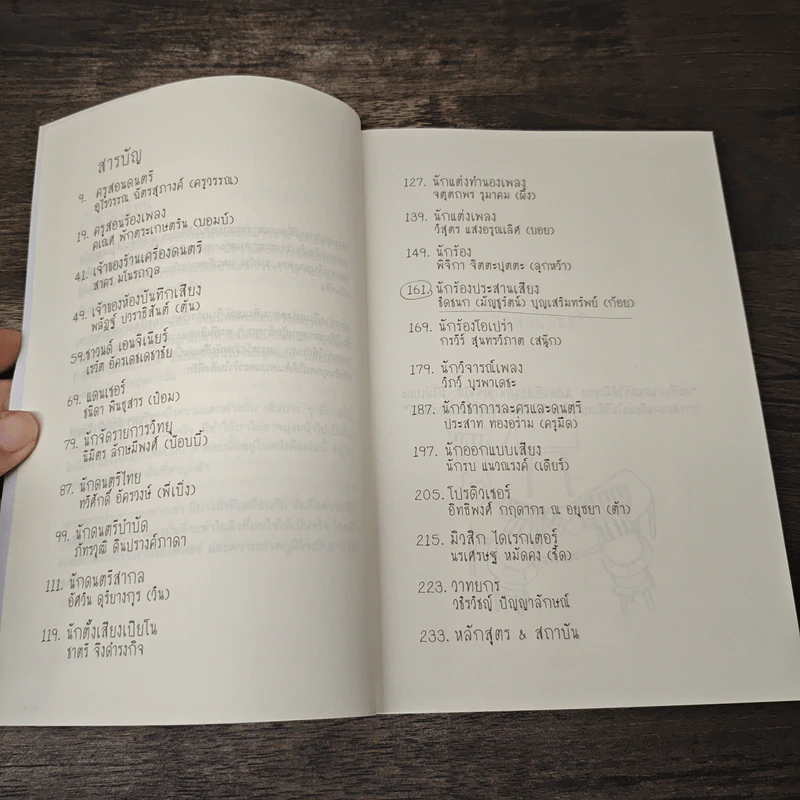 สารบัญ
9. ครูสอนดนตรี
อุไรวรรณ ฉัตรสุภางค์ (ครูวรรณ)
19. ครูสอนร้องเพลง
คณิศ พักตระเกษตริน (บอมบ์)
41. เจ้าของร้านเครื่องดนตรี
สาคร มโนรถกุล
49. เจ้าของห้องบันทึกเสียง
พลัฏฐ์ ปวราธิสันต์ (ตั้น)
59. ซาวนด์ เอนจิเนียร์
เรวัต อัครเดชเดชาชัย
69. แดนเซอร์
ชนิดา พันธุสาร (ป้อม)
79. นักจัดรายการวิทยุ
นิมิตร ลักษมีพงศ์ (บ๊อบบี้)
87. นักดนตรีไทย
ทวีศักดิ์ อัครวงษ์ (พี่เบิ้ง)
99. นักดนตรีบำบัด
ภัทรวุฒิ ดินปรางค์ภาดา
111. นักดนตรีสากล
อัศวิน ดุริยางกูร (วิน)
119. นักตั้งเสียงเปียโน
ชาตรี จึงดำรงกิจ
127. นักแต่งทำนองเพลง
จตุตถพร รุมาคม (ผึ้ง)
139. นักแต่งเพลง
วิสุตร แสงอรุณเลิศ (บอย)
149. นักร้อง
พิจิกา จิตตะปุตตะ (ลูกหว้า)
161. นักร้องประสานเสียง
ธิดชนก (มัญชุรัตน์) บุญเสริมทรัพย์ (ก้อย)
169. นักร้องโอเปร่า
กรวีร์ สุนทรวิภาต (สนุ๊ก)
179. นักวิจารณ์เพลง
วิภว์ บูรพาเดชะ
187. นักวิชาการละครและดนตรี
ประสาท ทองอร่าม (ครูมืด)
197. นักออกแบบเสียง
นักรบ แนวณรงค์ (เดียร์)
205. โปรดิวเซอร์
อิทธิพงศ์ กฤดากร ณ อยุธยา (ต้า)
215. มิวสิก ไดเรกเตอร์
นรเศรษฐ หมัดคง (ซี้ด)
223. วาทยกร
วธีรวิชญ์ ปัญญาลักษณ์
233. หลักสูตร & สถาบัน